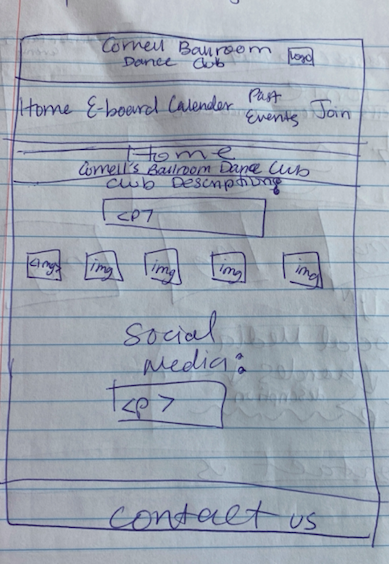 Cornell Ballroom
Dance Club
logo
Home E-board Calender Past Events Join
Home
Cornell's Ballroom Dance Club
Club Description:
<p>
<img> img img img img
Social
Media:
<p>
Contact us